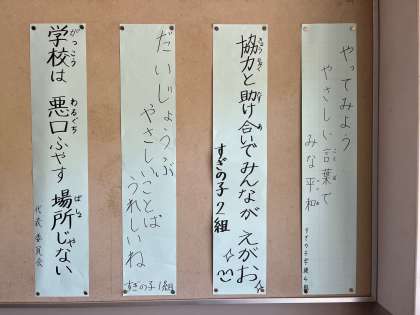 やってみよう
やさしい言葉で
みな平和
協力と助け合いでみんながえがお
すぎの子2組
だいじょうぶ
やさしいことば
うれしいね
すぎの子1組
学校は悪口ふやす場所じゃない
代表委員会